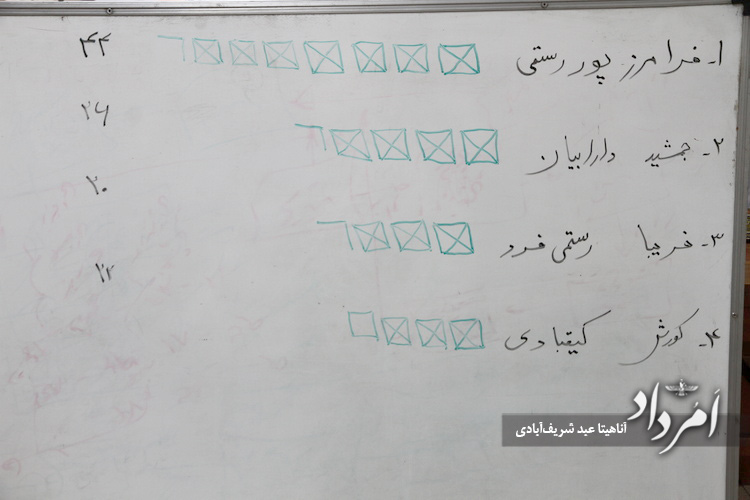 ۱- فرامرز پور رستمی ۴۴
۲- جمشید دارابیان ۲۶
۳- فریبا رستمی فرد ۲۰
۴- کورش کیقبادی ۲۲
اَمُرداد
آناهیتا عبد شریف‌آبادی